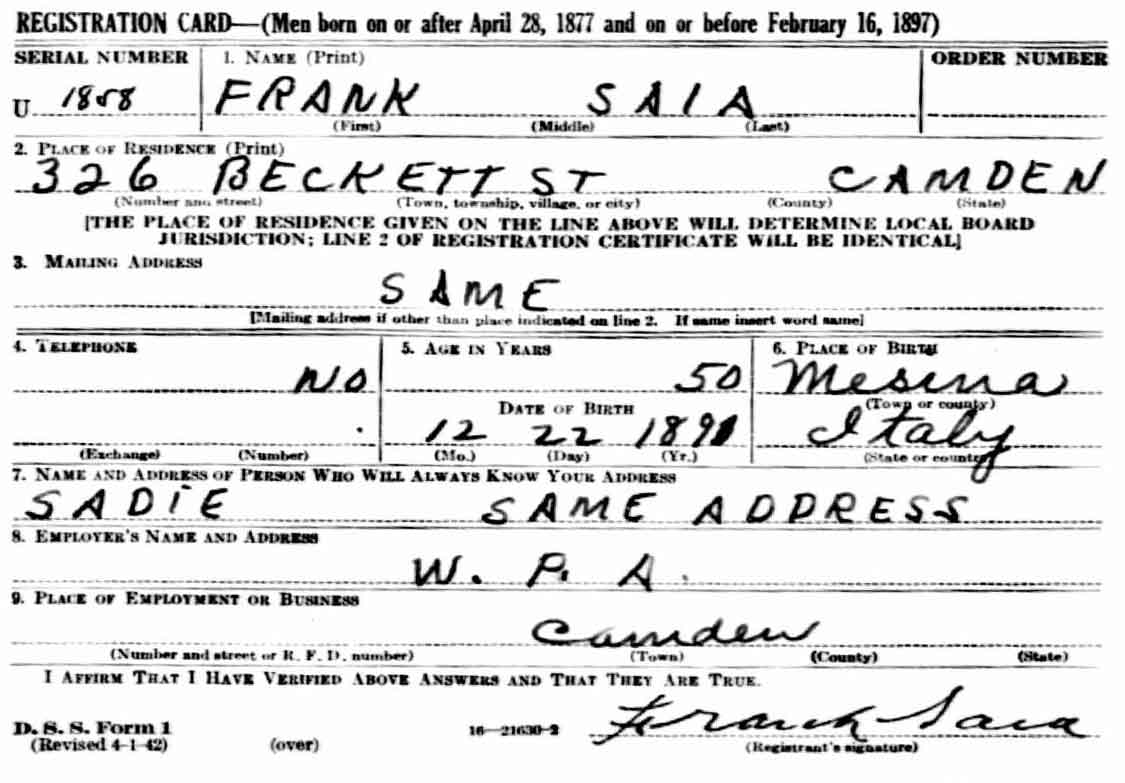 REGISTRATION CARD—(Men born on or after April 28, 1877 and on or before February 16, 1897)
SERIAL NUMBER 1. NAME (Print) ORDER NUMBER
U 1858 FRANK SAIA
(First) (Middle) (Last)
2. PLACE OF RESIDENCE (Print)
326 BECKETT ST CAMDEN
(Number and street) (Town, township, village, or city) (County) (State)
[THE PLACE OF RESIDENCE GIVEN ON THE LINE ABOVE WILL DETERMINE LOCAL BOARD
JURISDICTION; LINE 2 OF REGISTRATION CERTIFICATE WILL BE IDENTICAL]
3. MAILING ADDRESS
SAME
[Mailing address if other than place indicated on line 2. If same insert word same]
4. TELEPHONE 5. AGE IN YEARS 6. PLACE OF BIRTH
No 50 Mesina
DATE OF BIRTH (Town or county)
12 22 1891 Italy
(Exchange) (Number) (Mo.) (Day) (Yr.) (State or country)
7. NAME AND ADDRESS OF PERSON WHO WILL ALWAYS KNOW YOUR ADDRESS
SADIE SAME ADDRESS
8. EMPLOYER'S NAME AND ADDRESS
W. P. A.
9. PLACE OF EMPLOYMENT OR BUSINESS
Camden
(Number and street or R. F. D. number) (Town) (County) (State)
I AFFIRM THAT I HAVE VERIFIED ABOVE ANSWERS AND THAT THEY ARE TRUE.
D. S. S. Form 1 16—21630-2 Frank Saia
(Revised 4-1-42) (over) (Registrant's signature)